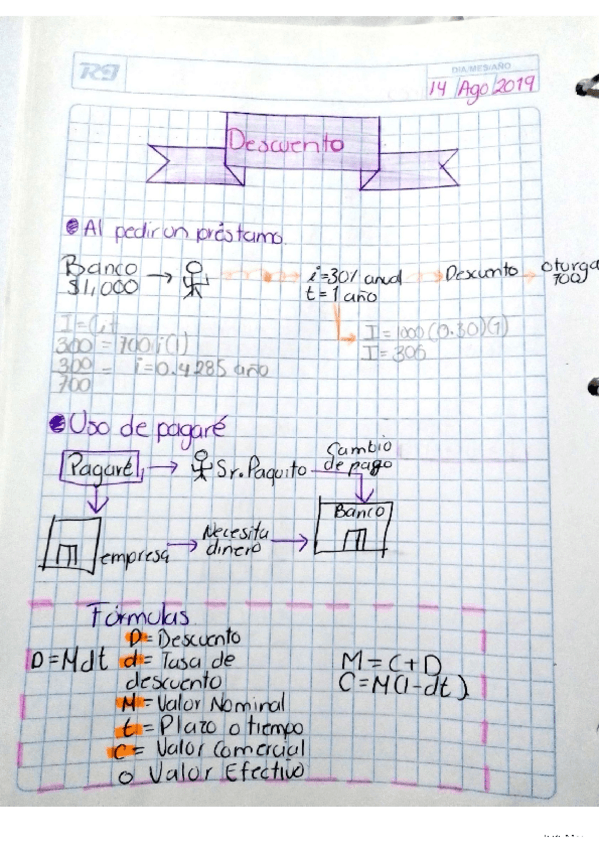 DIA/MES/AÑO
14 Ago 2019
Descuento
Al pedir un préstamo
Banco
$1,000
i=30% anual
t=1 año
Descunto
oturga
700
I=1000(0.30)(1)
I=300
300 = 700 i(1)
300 = i=0.4285 año
700
Uso de pagaré
Pagaré
Sr. Paquito
Cambio
de pago
Banco
empresa
Necesita
dinero
Fórmulas
D=Mdt
D= Descuento
d= Tasa de
descuento
M= Valor Nominal
t= Plazo o tiempo
C= Valor Comercial
o Valor Efectivo
M=C+D
C=M(1-dt)